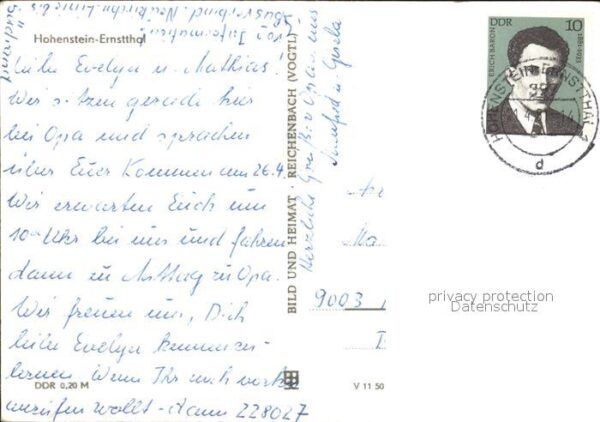 Hohenstein-Ernstthal
Liebe Evelyn u. Mathias!
Wir sitzen gerade hier
bei Opa und sprachen
über Euer Kommen am 26.4.
Wir erwarten Euch um
10 Uhr bei uns und fahren
dann zu Mittag zu Opa.
Wir freuen uns, Dich
liebe Evelyn kennenzu-
lernen. Wenn Ihr noch vorher
anrufen wollt - dann 228027
Herzliche Grüße v. Opa, uns
Manfred u. Gisela
DDR 0,20 M
BILD UND HEIMAT · REICHENBACH (VOGTL)
V 11 50
DDR 10
ERICH BARON
1881-1933
HOHENSTEIN-ERNSTTHAL 1
d
9003
privacy protection
Datenschutz